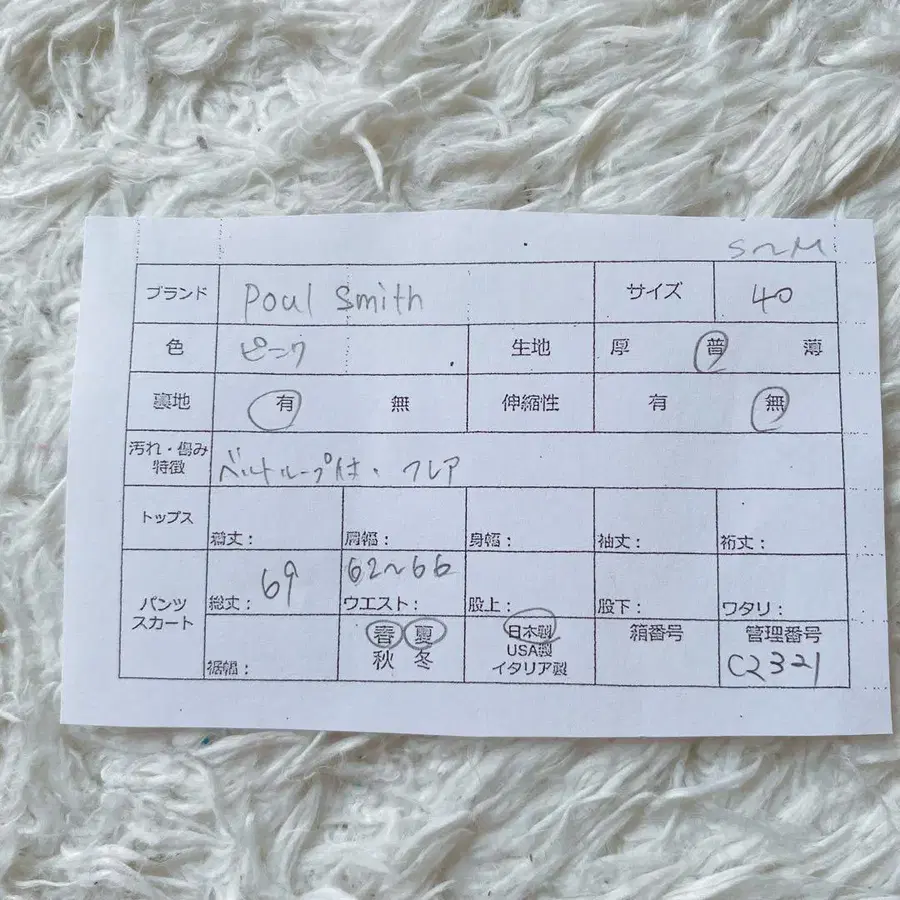 S～M
ブランド Poul Smith サイズ 40
色 ピンク 生地 厚 普 薄
裏地 有 無 伸縮性 有 無
汚れ・傷み
特徴 ベルトループ付・フレア
トップス 着丈： 肩幅： 身幅： 袖丈： 裄丈：
パンツ
スカート 総丈： 69 ウエスト： 62～66 股上： 股下： ワタリ：
裾幅： 春 夏 日本製 箱番号 管理番号
秋 冬 USA製 C2321
イタリア製